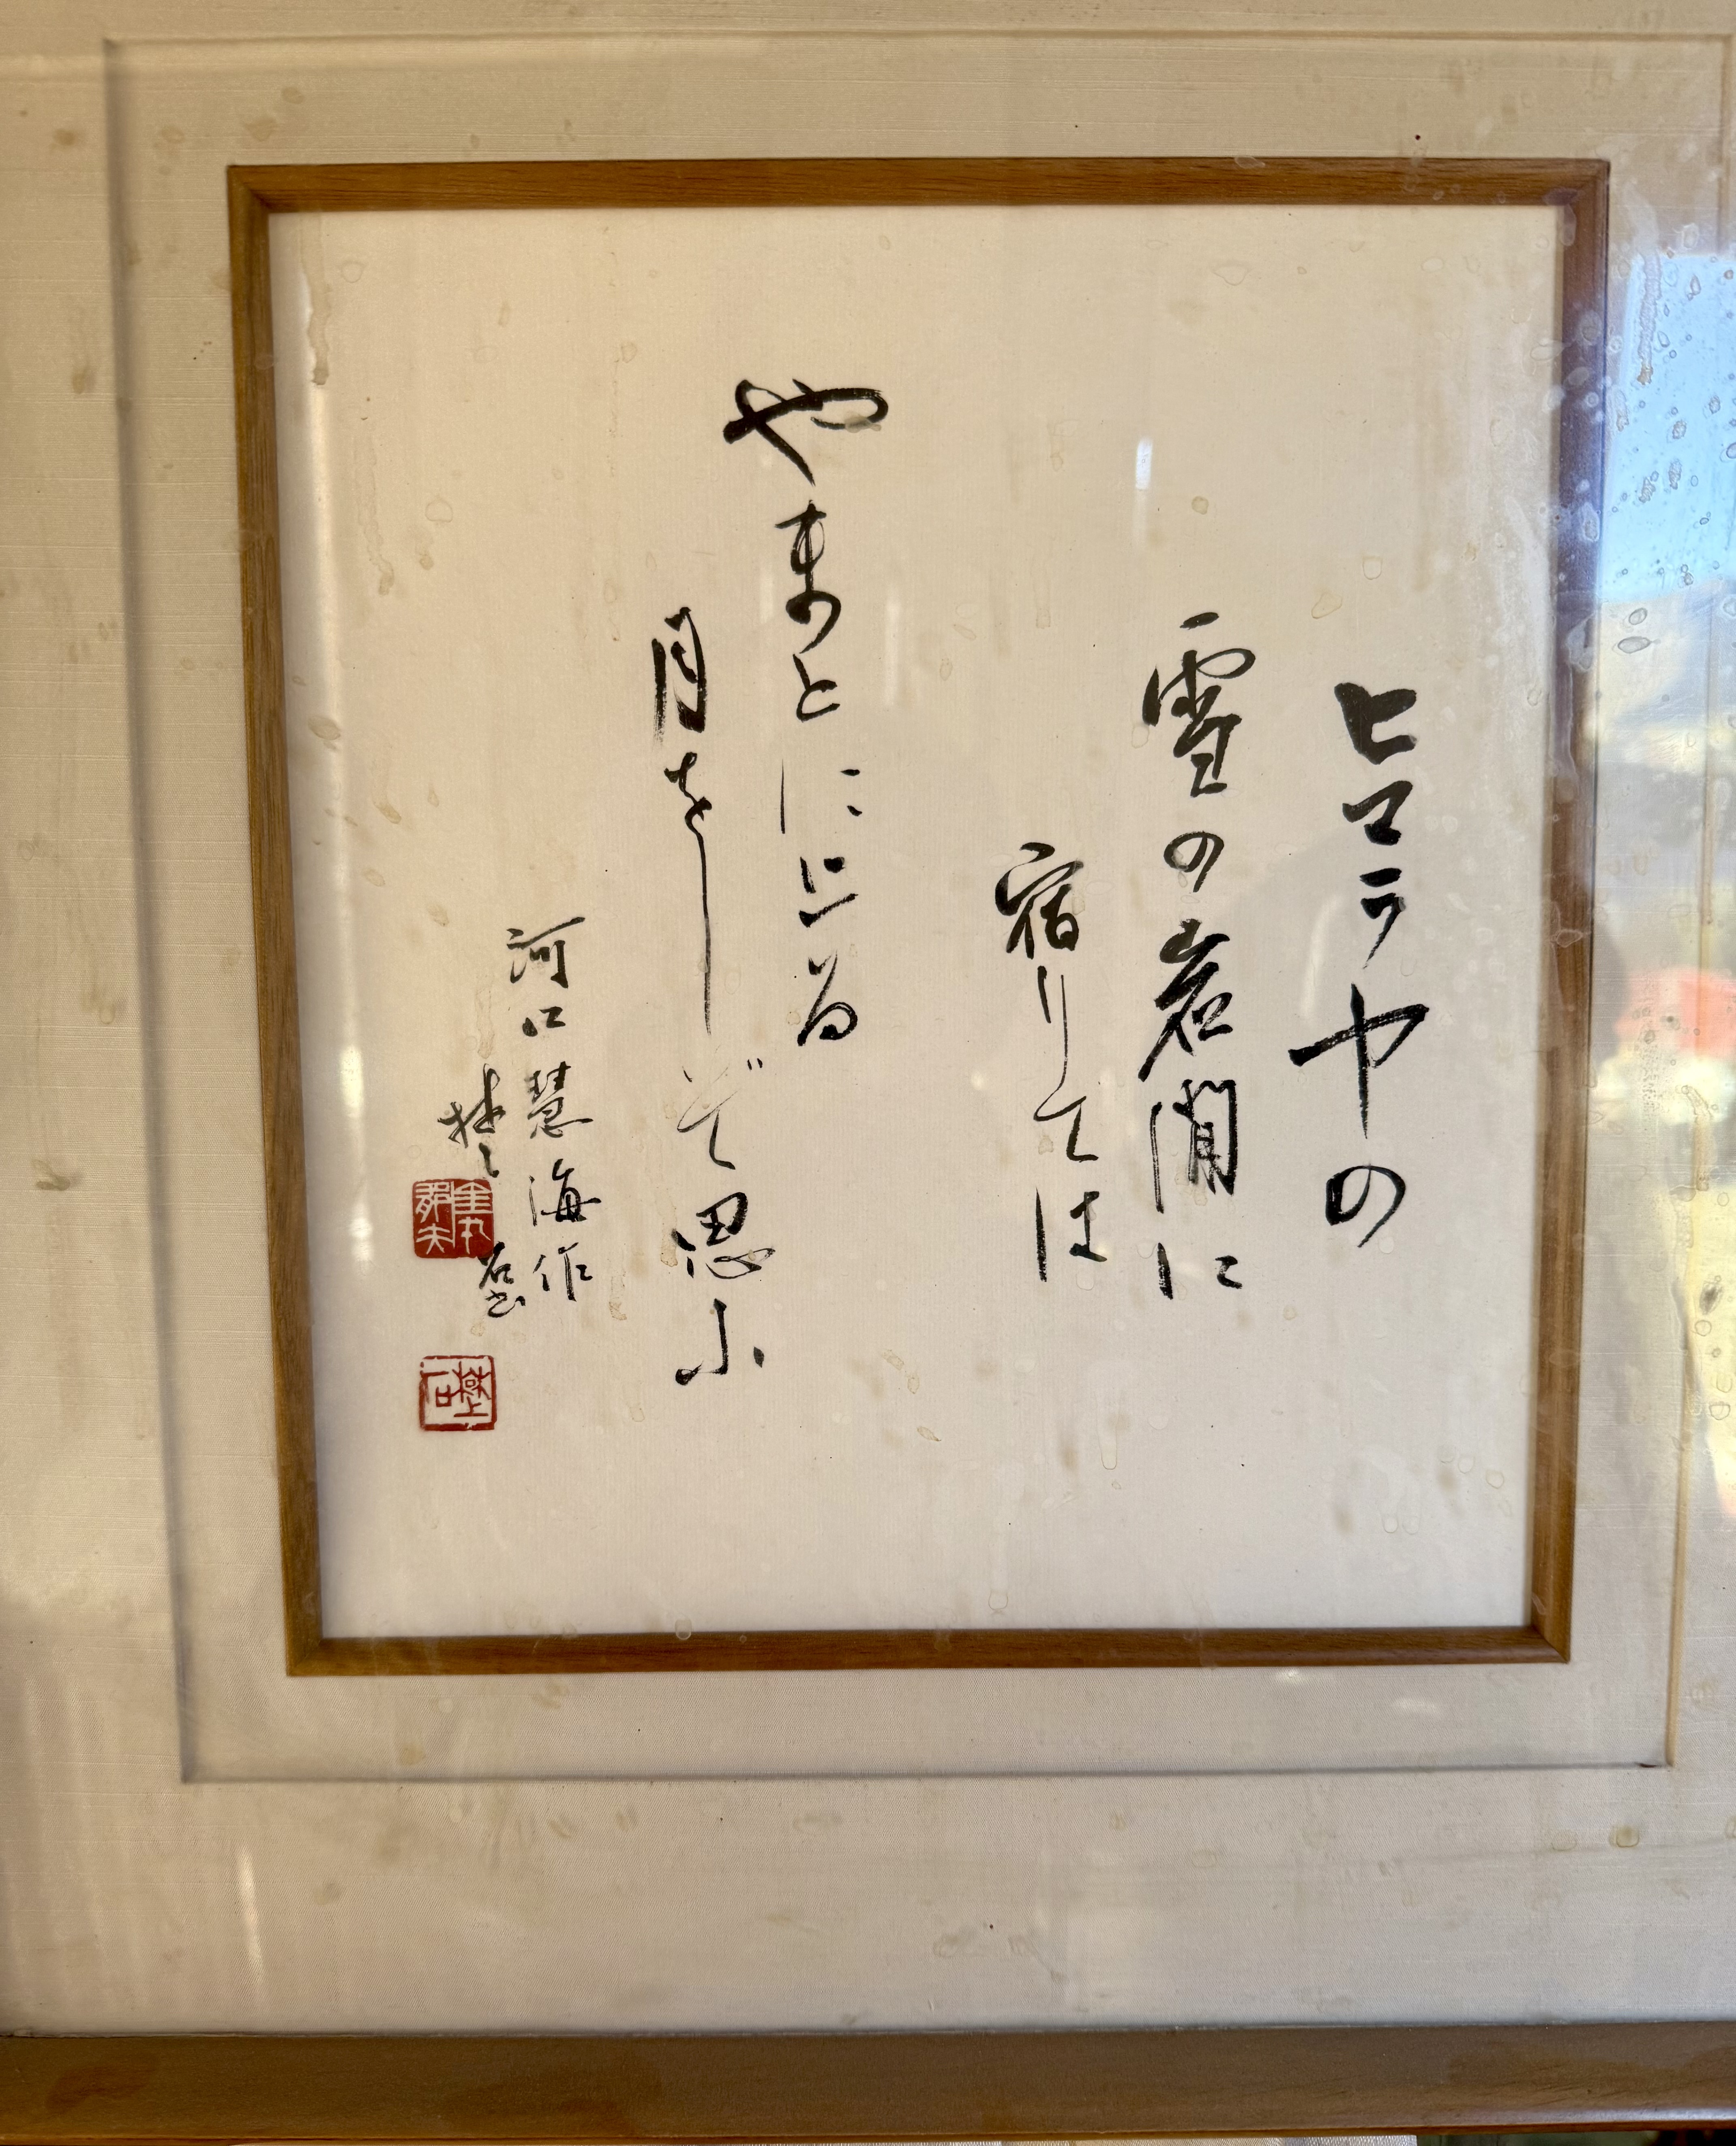 ヒマラヤの
雪の岩間に
宿りては
やまとに上る
月をしぞ思ふ
河口慧海作